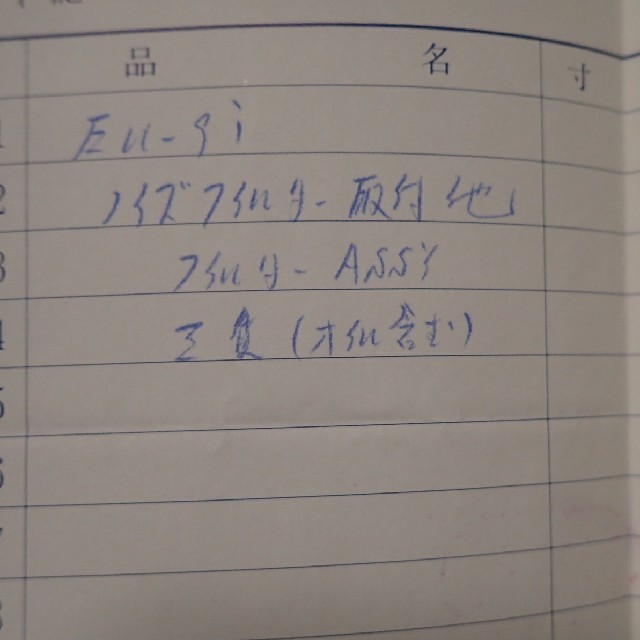 品名 寸
1 EU-9i
2 ノイズフィルター取付 他
3 フィルターASSY
4 工賃(オイル含む)
5
6
7
8